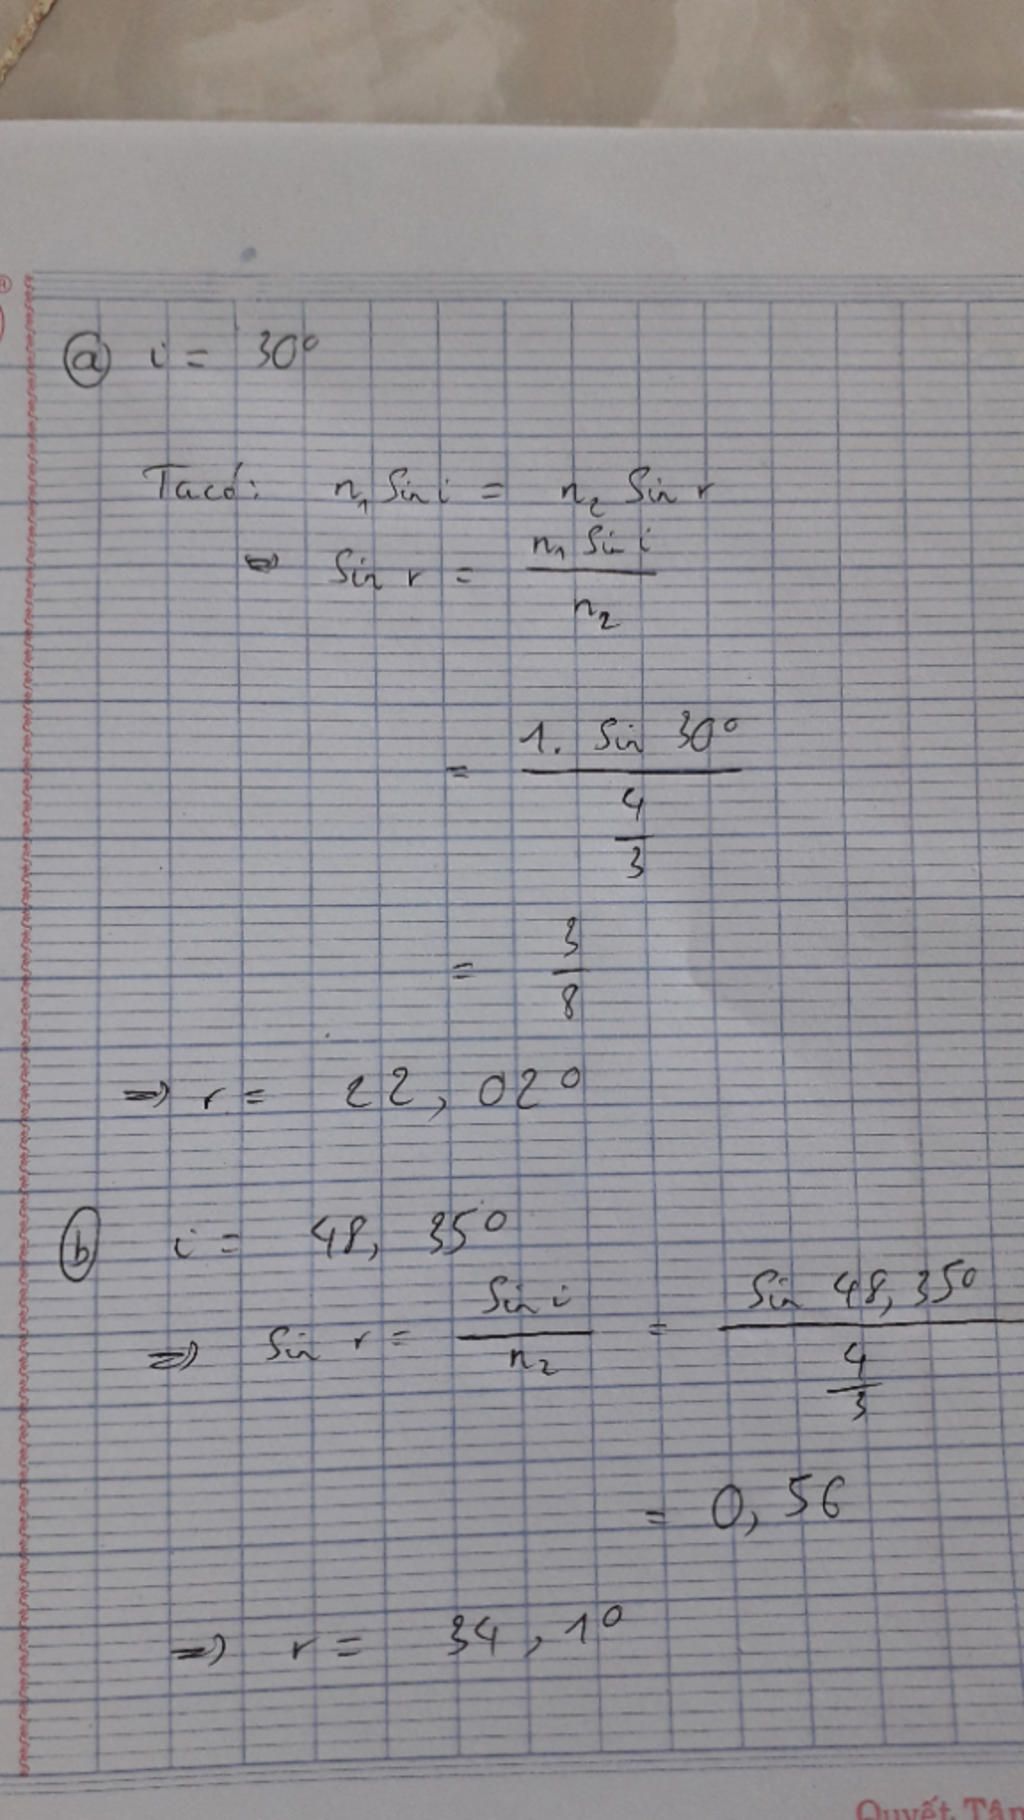 a i = 30°
Ta có: n₁ Sin i = n₂ Sin r
⇒ Sin r = n₁ Sin i / n₂
= 1. Sin 30° / 4/3
= 3/8
⇒ r = 22,02°
b i = 48,35°
⇒ Sin r = Sin i / n₂ = Sin 48,35° / 4/3
= 0,56
⇒ r = 34,1°
Quyết